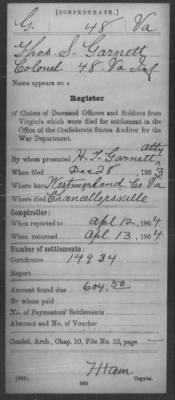 (CONFEDERATE.)
G. 48 Va
Thos. S. Garnett
Colonel 48 Va Inf
Name appears on a
Register
of Claims of Deceased Officers and Soldiers from
Virginia which were filed for settlement in the
Office of the Confederate States Auditor for the
War Department.
By whom presented H. T. Garnett Atty
When filed Dec 28, 1863
Where born Westmorland Co. Va
Where died Chancellorsville
Comptroller:
When reported to Apl 12, 1864
When returned Apl 13, 1864
Number of settlements:
Certificates 14934
Report
Amount found due 604.50
By whom paid
No. of Paymasters' Settlements
Abstract and No. of Voucher
Confed. Arch., Chap. 10, File No. 22, page
Ham
Copyist.